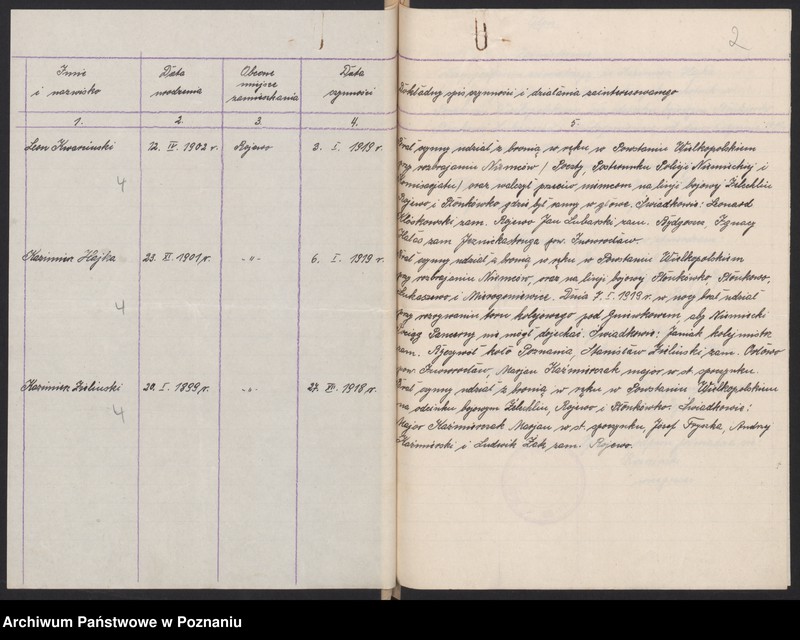 2
Imię i nazwisko
Data urodzenia
Obecne miejsce zamieszkania
Data czynności
Dokładny spis czynności i działania zainteresowanego
1. 2. 3. 4. 5
Leon 12. IV. 1902 r. Rojewo 2. I. 1919 r. Brał czynny udział z bronią w ręku w Powstaniu Wielkopolskiem
przy rozbrajaniu Niemców / Poczty, Posterunku Policji Niemieckiej i
Komisarjatu / oraz walczył przeciw niemcom na linji bojowej Żelechlin
Rojewo i Płonkówko gdzie był ranny w głowę. Świadkowie: Leonard
zam. Rojewo Jan Lubarski zam. Bydgoszcz, Ignacy
zam. pow. Inowrocław.
4
Kazimierz Hajka 23. XI. 1901 r. -„- 6. I. 1919 r. Brał czynny udział z bronią w ręku w Powstaniu Wielkopolskiem
przy rozbrajaniu Niemców, oraz na linji bojowej Płonkówko, Płonkowo,
i Dnia 7. I. 1919 r. w nocy brał udział
przy rozrywaniu toru kolejowego pod Gniewkowem, aby Niemiecki
Pociąg Pancerny nie mógł dojechać. Świadkowie: Janiak
zam. koło Poznania, Stanisław Zieliński zam. Orłowo
pow. Inowrocław, Marjan Kaźmierczak major w st. spoczynku.
4
Kazimierz Zieliński 20. I. 1899 r. -„- 27. XII. 1918 r. Brał czynny udział z bronią w ręku w Powstaniu Wielkopolskiem
na odcinku bojowym Żelechlin, Rojewo i Płonkówko. Świadkowie:
Major Kaźmierczak Marjan w st. spoczynku, Józef Andrzej
Kaźmierski i Ludwik Żak zam. Rojewo.
4
Archiwum Państwowe w Poznaniu